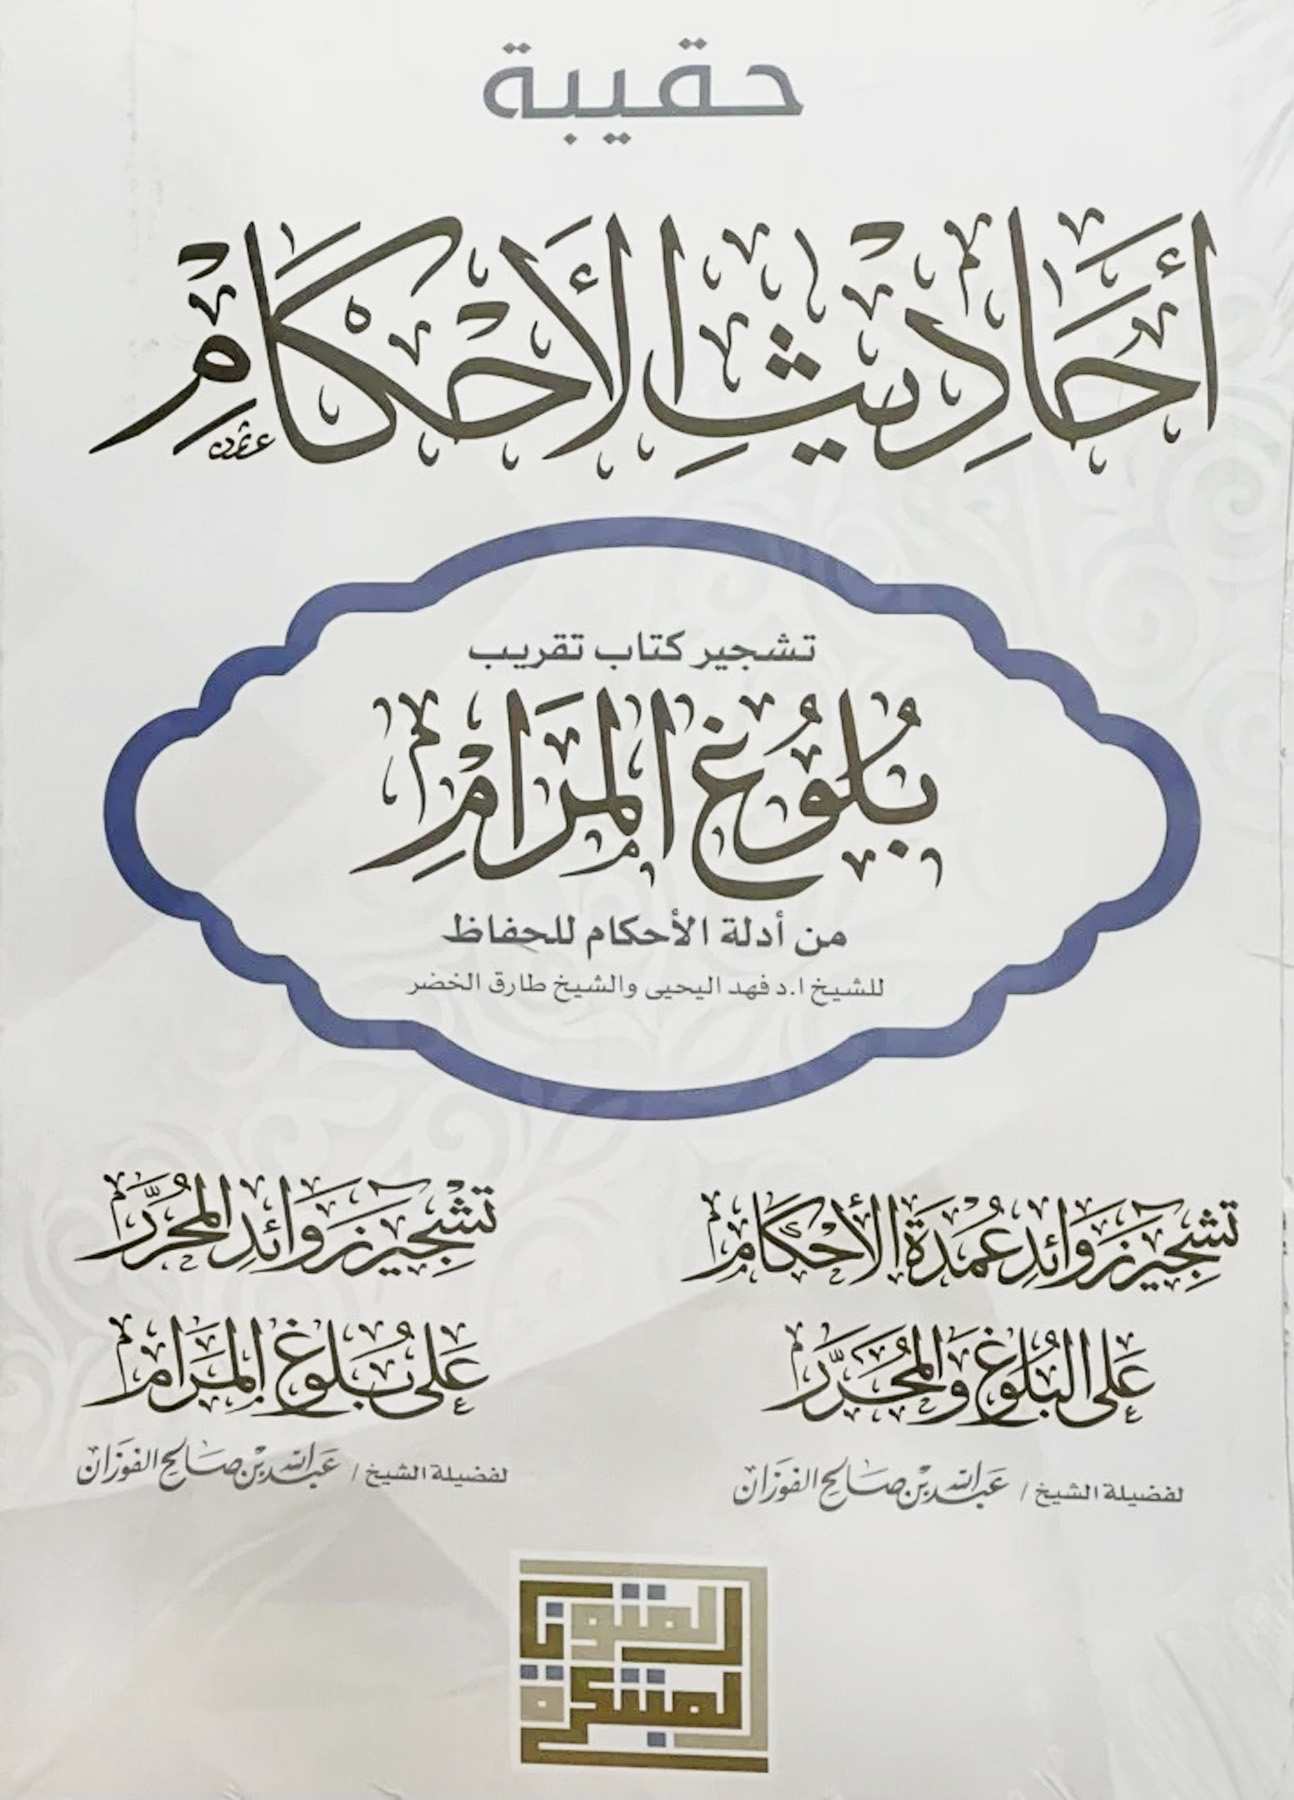 حقيبة
أَحَادِيثِ الأَحْكَامِ
تشجير كتاب تقريب
بُلُوغِ المَرَامِ
من أدلة الأحكام للحفاظ
للشيخ ا.د فهد اليحيى والشيخ طارق الخضر
تشجير زوائد عمدة الأحكام
على البلوغ والمحرر
لفضيلة الشيخ / عبدالله بن صالح الفوزان
تشجير زوائد المحرر
على بلوغ المرام
لفضيلة الشيخ / عبدالله بن صالح الفوزان
المتون
المبتكرة